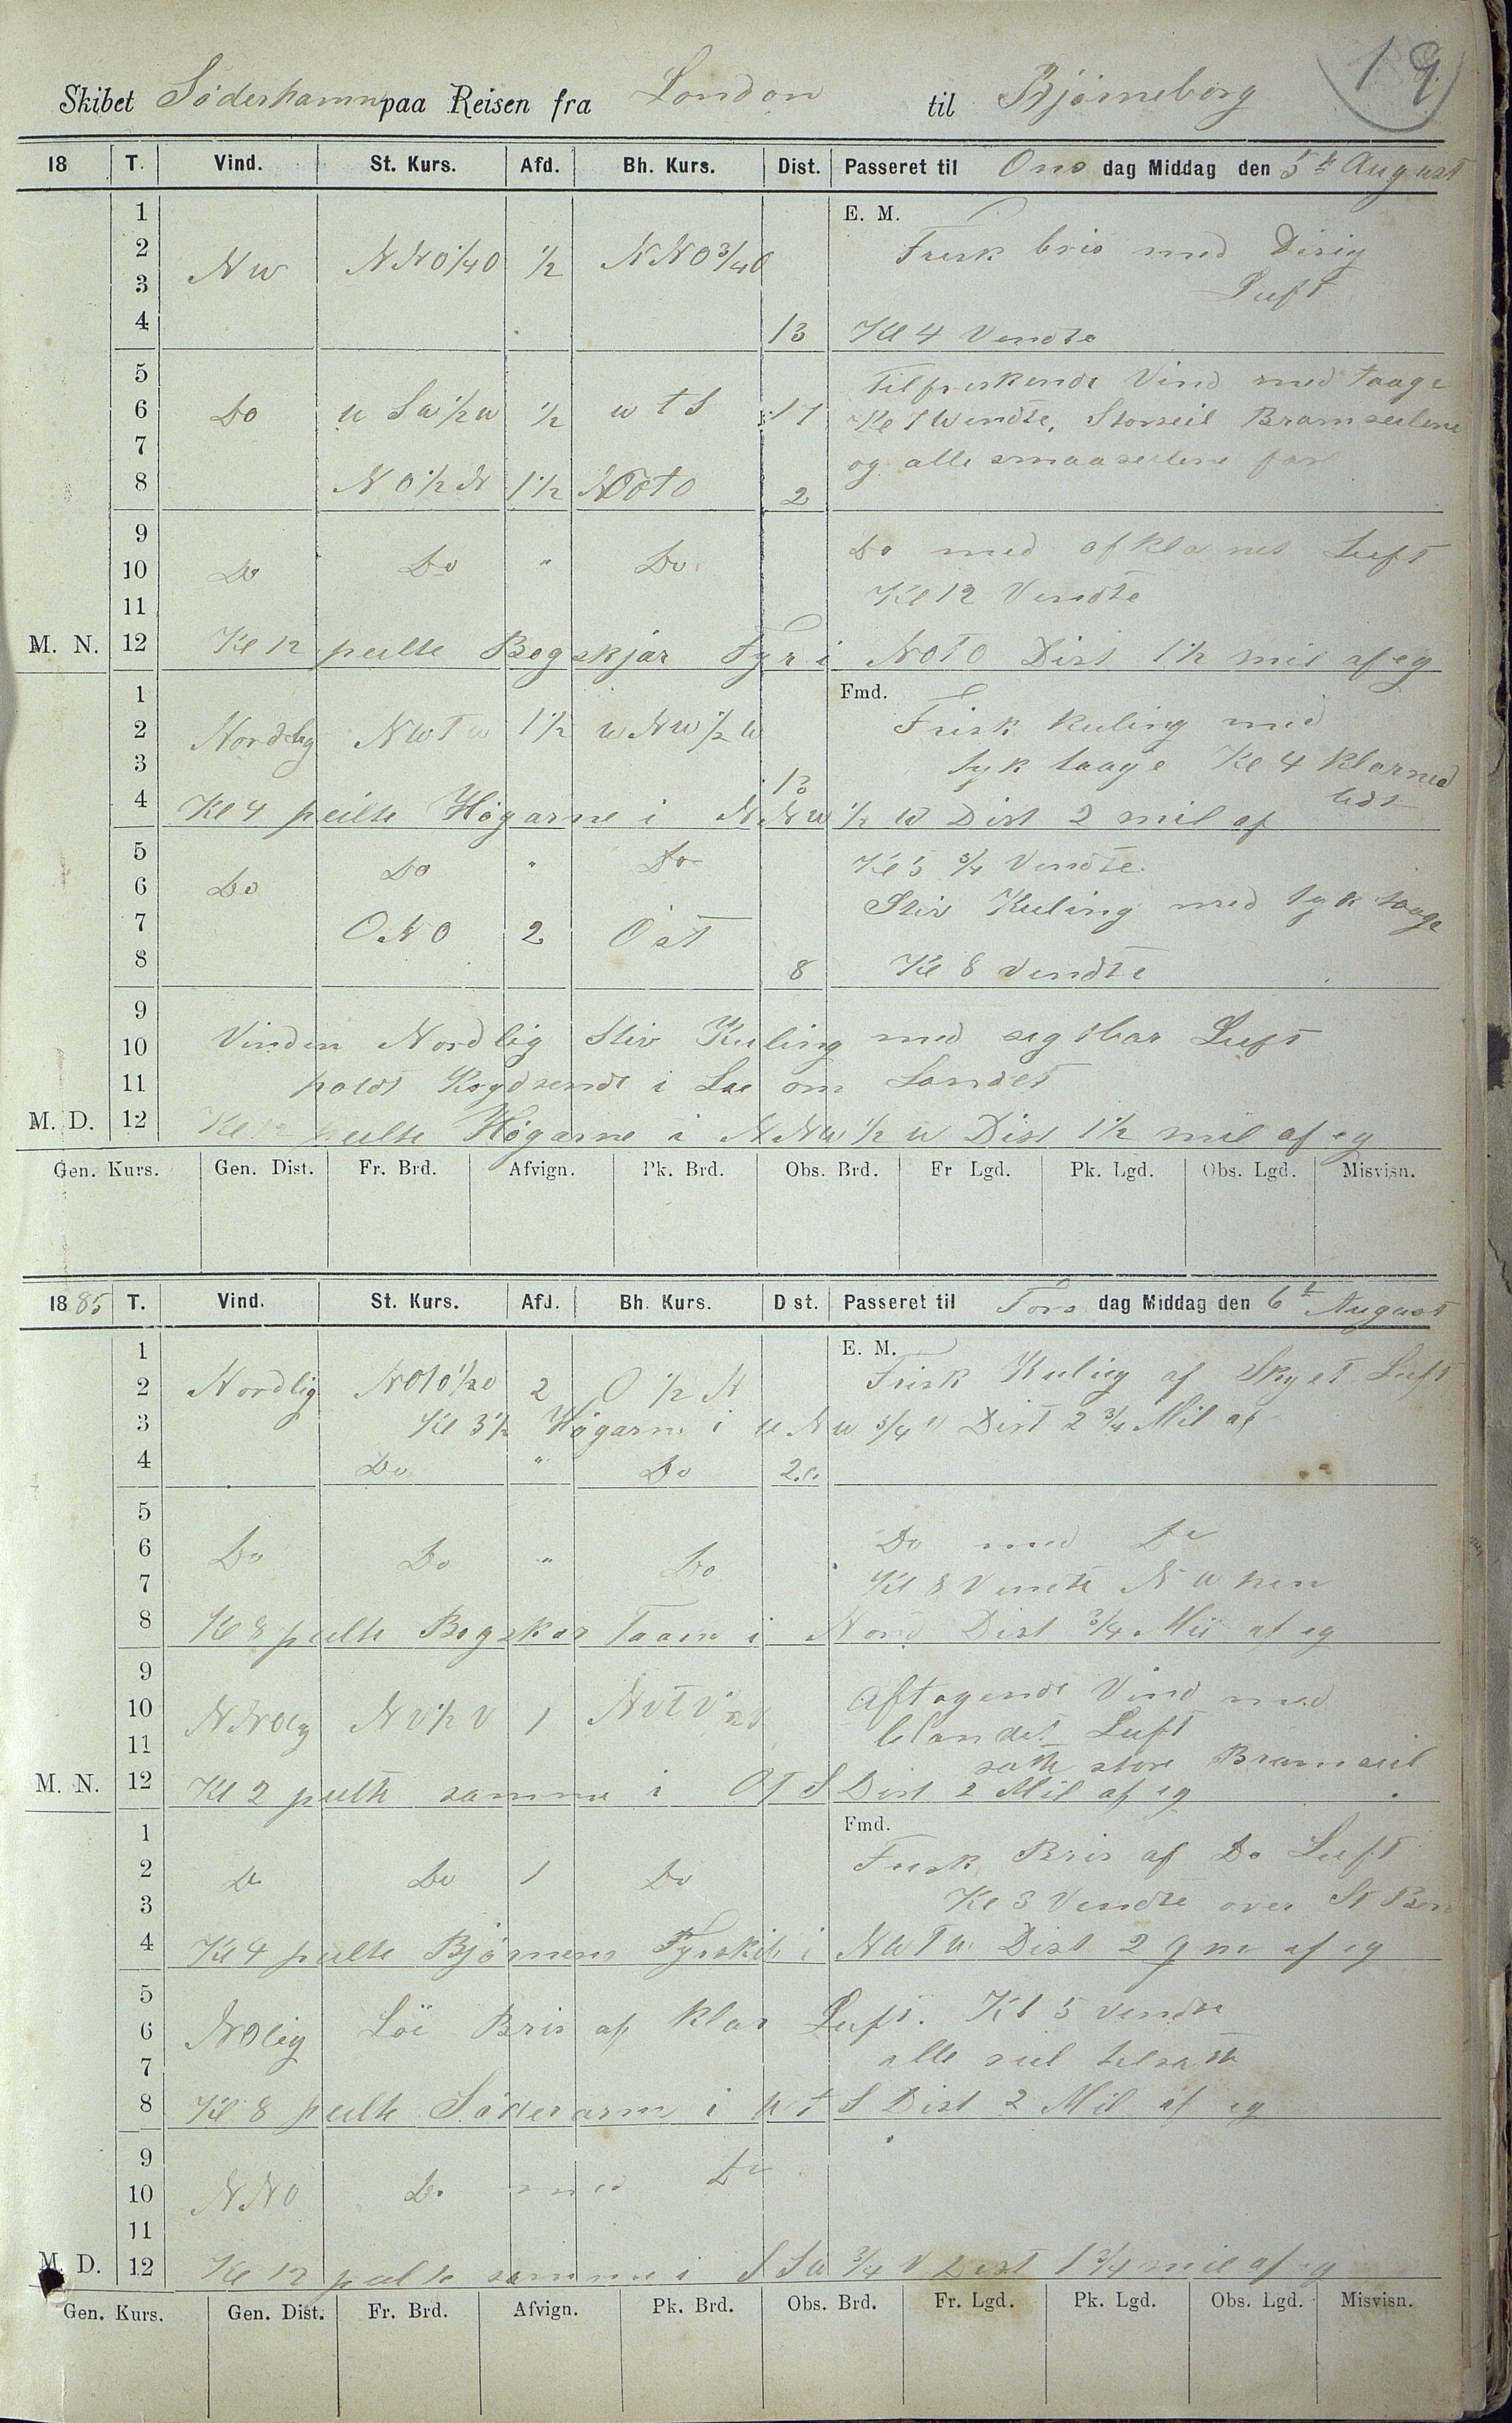 19
Skibet Söderhamn paa Reisen fra London til Bjørneborg
18 T. Vind. St. Kurs. Afd. Bh. Kurs. Dist. Passeret til Ons dag Middag den 5t August
1 E. M.
2 Nw NNO1/4O 1/2 NNO3/4O Frisk bris med Disig
3 Luft
4 13 Kl 4 Vendte
5 Tilfriskende Vind med taage
6 Do w Sw 1/2 w 1/2 w t S 17 Kl 7 Wendte, Storseil Bramseilene
7 og alle smaaseilene fast
8 NO 1/2 N 1 1/2 NOtO 2
9 Do med afklarnet Luft
10 Do Do " Do
11 Kl 12 Vendte
M. N. 12 Kl 12 peilte Bogskjär Fyr i NOTO Dist 1 1/2 mil af eg
1 Fmd.
2 Nordlig NwTw 1 1/2 wNw 1/2 w Frisk kuling med
3 13 tyk taage Kl 4 klarned
4 Kl 4 peilte Högarne i NNw 1/2 w Dist 2 mil af
5 Do " Do Kl 5 3/4 Vendte
6 Do Stiv Kuling med tyk taage
7 ONO 2 Ost
8 8 Kl 8 Vendte
9
10 Vinden Nordlig Stiv Kuling med sigtbar Luft
11 holdt Krydsende i Lae om Landet
M. D. 12 Kl 12 peilte Högarne i NNw 1/2 w Dist 1 1/2 mil af eg
Gen. Kurs. Gen. Dist. Fr. Brd. Afvign. Pk. Brd. Obs. Brd. Fr Lgd. Pk. Lgd. Obs. Lgd. Misvisn.
1885 T. Vind. St. Kurs. Afd. Bh. Kurs. D st. Passeret til Tors dag Middag den 6t August
1 E. M.
2 Nordlig NOtO 1/2 O 2 O 1/2 N Frisk Kuling af Skyet Luft
3 Kl 3 1/2 Högarne i wNw 3/4 w Dist 2 3/4 Mil af
4 Do " Do
5
6 Do Do " Do Do med Do
7 Kl 8 Vendte Nw hen
8 Kl 8 peilte Bogskär Taarn i Nord Dist 3/4 Mil af eg
9
10 NNOlig NV 1/2 V 1 NVTV Aftagende Vind med
11 blandet Luft
satte store Bramseil
M. N. 12 Kl 2 peilte samme i OTS Dist 2 Mil af eg
1 Fmd.
2 Do Do 1 Do Frisk Bris af Do Luft
3 Kl 3 Vendte over St Bor
4 Kl 4 peilte Björnens Fyrskib i NwTw Dist 2 qm af eg
5
6 NOlig Löi Bris af klar Luft. Kl 5 vendte
7 alle seil tilsatte
8 Kl 8 peilte Söderarm i w t S Dist 2 Mil af eg
9
10 NNO Do med Do
11
M. D. 12 Kl 12 peilte samme i SSw 3/4 V Dist 1 3/4 mil af eg
Gen. Kurs. Gen. Dist. Fr. Brd. Afvign. Pk. Brd. Obs. Brd. Fr. Lgd. Pk. Lgd. Obs. Lgd. Misvisn.